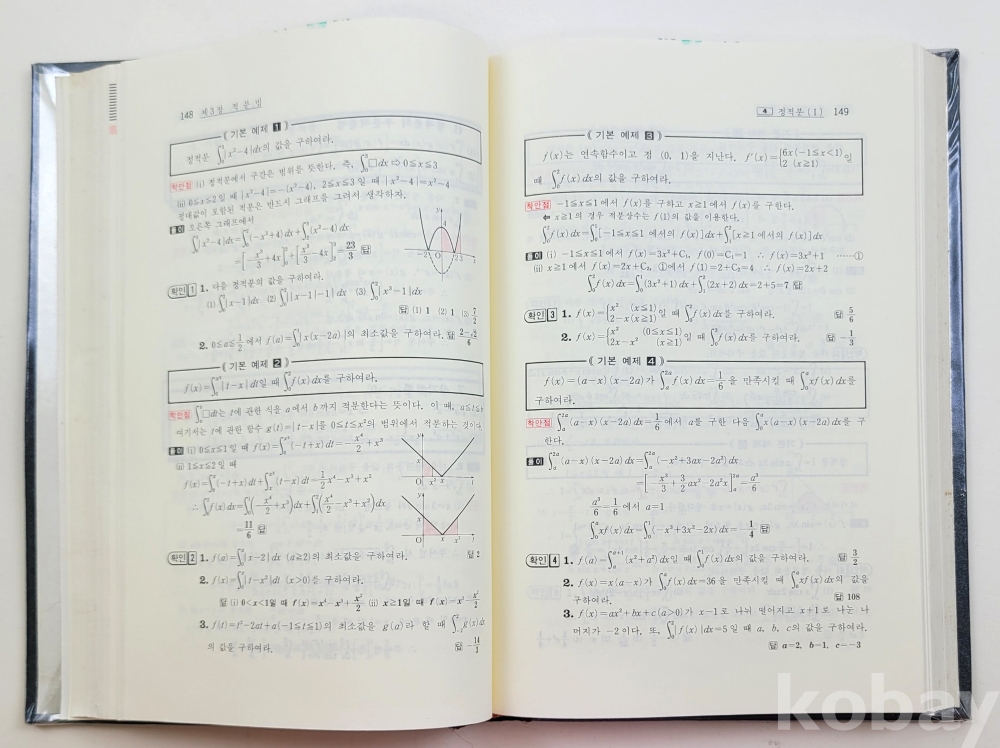 148 제3장 적 분 법
《 기본 예제 1 》
정적분 ∫₀³|x²−4|dx의 값을 구하여라.
착안점 (i) 정적분에서 구간은 범위를 뜻한다. 즉, ∫₀³□dx ⇨ 0≤x≤3
(ii) 0≤x≤2일 때 |x²−4|=−(x²−4), 2≤x≤3일 때 |x²−4|=x²−4
절대값이 포함된 적분은 반드시 그래프를 그려서 생각하자.
풀이 오른쪽 그래프에서
∫₀³|x²−4|dx=∫₀²(−x²+4)dx+∫₂³(x²−4)dx
=[−x³/3+4x]₀²+[x³/3−4x]₂³=23/3 답
확인 1 1. 다음 정적분의 값을 구하여라.
(1) |x−1|dx (2) ||x−1|−1|dx (3) |x³−1|dx
답 (1) 1 (2) 1
2. 0≤a≤1/2에서 f(a)=∫₀¹|x(x−2a)|의 최소값을 구하여라. 답 2−√2/6
《 기본 예제 2 》
|t−x|dt일 때 ∫₀²f(x)dx를 구하여라.
착안점 □dt는 t에 관한 식을 a에서 b까지 적분한다는 뜻이다. 이 때, a≤t≤b
여기서는 t에 관한 함수 g(t)=|t−x|를 0≤t≤x²의 범위에서 적분하는 것이다.
풀이 (i) 0≤x≤1일 때 (−t+x)dt=−x⁴/2+x³
(ii) 1≤x≤2일 때
f(x)=∫₀ˣ(−t+x)dt+ (t−x)dt=1/2x⁴−x³+x²
∴ ∫₀²f(x)dx=∫₀¹(−x⁴/2+x³)dx+∫₁²(x⁴/2−x³+x²)dx
=11/6 답
확인 2 1. |x−2|dx (a≥2)의 최소값을 구하여라. 답 2
2. |t−x²|dt (x>0)를 구하여라.
답 (i) 0<x<1일 때 f(x)=x⁴−x²+ (ii) x≥1일 때
3. f(t)=t²−2at+a(−1≤t≤1)의 최소값을 g(a)라 할 때 g(x)dx
의 값을 구하여라. 답
4 정적분(1) 149
《 기본 예제 3 》
f(x)는 연속함수이고 점 (0, 1)을 지난다. f′(x)={6x(−1≤x<1) 2 (x≥1)일
때 ∫₀²f(x)dx의 값을 구하여라.
착안점 −1≤x≤1에서 f(x)를 구하고 x≥1에서 f(x)를 구한다.
⇦ x≥1의 경우 적분상수는 f(1)의 값을 이용한다.
∫₀²f(x)dx=∫₀¹[−1≤x≤1에서의 f(x)]dx+∫₁²[x≥1에서의 f(x)]dx
풀이 (i) −1≤x≤1에서 f(x)=3x²+C₁, f(0)=C₁=1 ∴ f(x)=3x²+1 ……①
(ii) x≥1에서 f(x)=2x+C₂, ①에서 f(1)=2+C₂=4 ∴ f(x)=2x+2
∫₀²f(x)dx=∫₀¹(3x²+1)dx+∫₁²(2x+2)dx=2+5=7 답
확인 3 1. f(x)={x² (x≤1) 2−x(x≥1)일 때 ∫₀²f(x)dx를 구하여라. 답 5/6
2. f(x)={x² (0≤x≤1) 2x−x² (x≥1)일 때 f(x)dx를 구하여라. 답
《 기본 예제 4 》
f(x)=(a−x)(x−2a)가 ∫ₐ²ᵃf(x)dx=1/6을 만족시킬 때 ∫₀ᵃxf(x)dx를
구하여라.
착안점 ∫ₐ²ᵃ(a−x)(x−2a)dx=1/6에서 a를 구한 다음 ∫₀ᵃx(a−x)(x−2a)dx를 구
한다.
풀이 ∫ₐ²ᵃ(a−x)(x−2a)dx=∫ₐ²ᵃ(−x²+3ax−2a²)dx
=[−x³/3+3/2ax²−2a²x]ₐ²ᵃ=a³/6
a³/6=1/6에서 a=1
∫₀ᵃxf(x)dx=∫₀¹(−x³+3x²−2x)dx=−1/4 답
확인 4 1. f(a)=∫ₐᵃ⁺¹(x²+a²)dx일 때 ∫₀¹f(x)dx의 값을 구하여라. 답 3/2
2. f(x)=x(a−x)가 ∫₀ᵃf(x)dx=36을 만족시킬 때 ∫₀ᵃxf(x)dx의 값을
구하여라. 답 108
3. f(x)=ax²+bx+c(a>0)가 x−1로 나뉘 떨어지고 x+1로 나눈 나
머지가 −2이다. 또, |f(x)|dx=5일 때 a, b, c의 값을 구하여라.
답 a=2, b=1, c=−3
kobay